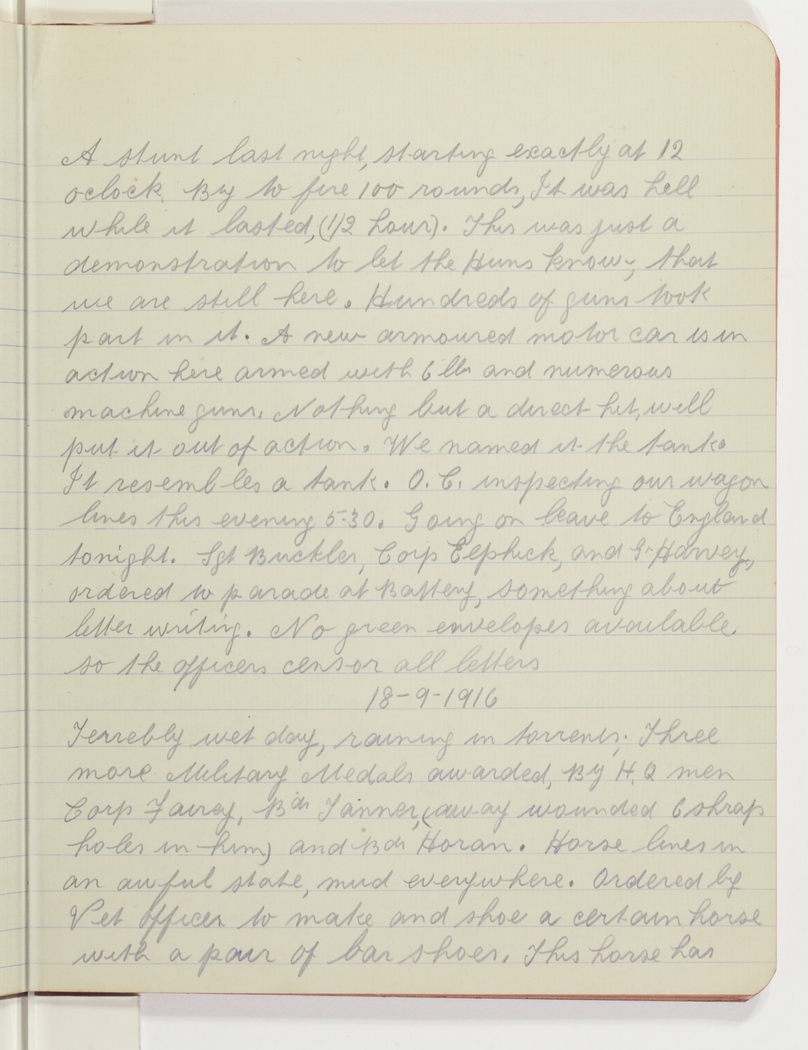 A stunt last night, starting exactly at 12
oclock. By to fire 100 rounds, It was hell
while it lasted, (1/2 hour). This was just a
demonstration to let the Huns know, that
we are still here. Hundreds of guns took
part in it. A new armoured motor car is in
action here armed with 6 lbs and numerous
machine guns. Nothing but a direct hit, will
put it out of action. We named it the tank.
It resembles a tank. O.C. inspecting our wagon
lines this evening 5-30. Going on leave to England
tonight. Sgt Buckler, Corp Elphick, and Gr Harvey,
ordered to parade at Battery, something about
letter writing. No green envelopes available.
so the officers censor all letters
18-9-1916
Terrebly wet day, raining in torrents. Three
more Military Medals awarded, By H.Q men
Corp Fairey, Bdr Tanner, (away wounded 6 shrap
holes in him) and Bdr Horan. Horse lines in
an awful state, mud everywhere. Ordered by
Vet officer to make and shoe a certain horse
with a pair of bar shoes. This horse has